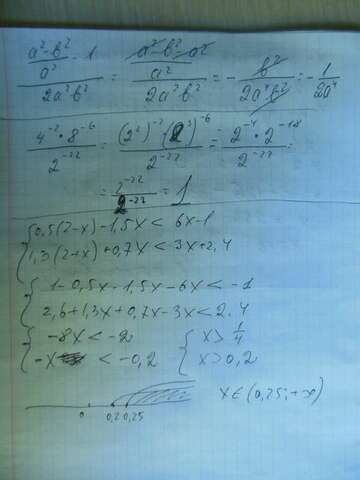 (a²-b²)/a² - 1 / 2a²b² = (a²-b²-a²)/a² / 2a²b² = - b²/2a⁴b² = - 1/2a⁴
4⁻²*8⁻⁶ / 2⁻²² = (2²)⁻²·(2³)⁻⁶ / 2⁻²² = 2⁻⁴*2⁻¹⁸ / 2⁻²² =
= 2⁻²² / 2⁻²² = 1
{ 0,5(2-x)-1,5x < 6x-1
1,3(2+x)+0,7x < 3x+2,4
{ 1-0,5x-1,5x-6x < -1
2,6+1,3x+0,7x-3x < 2,4
{ -8x < -2 { x > 1/4
-x < -0,2 x > 0,2
0 0,2 0,25 x ∈ (0,25; +∞)